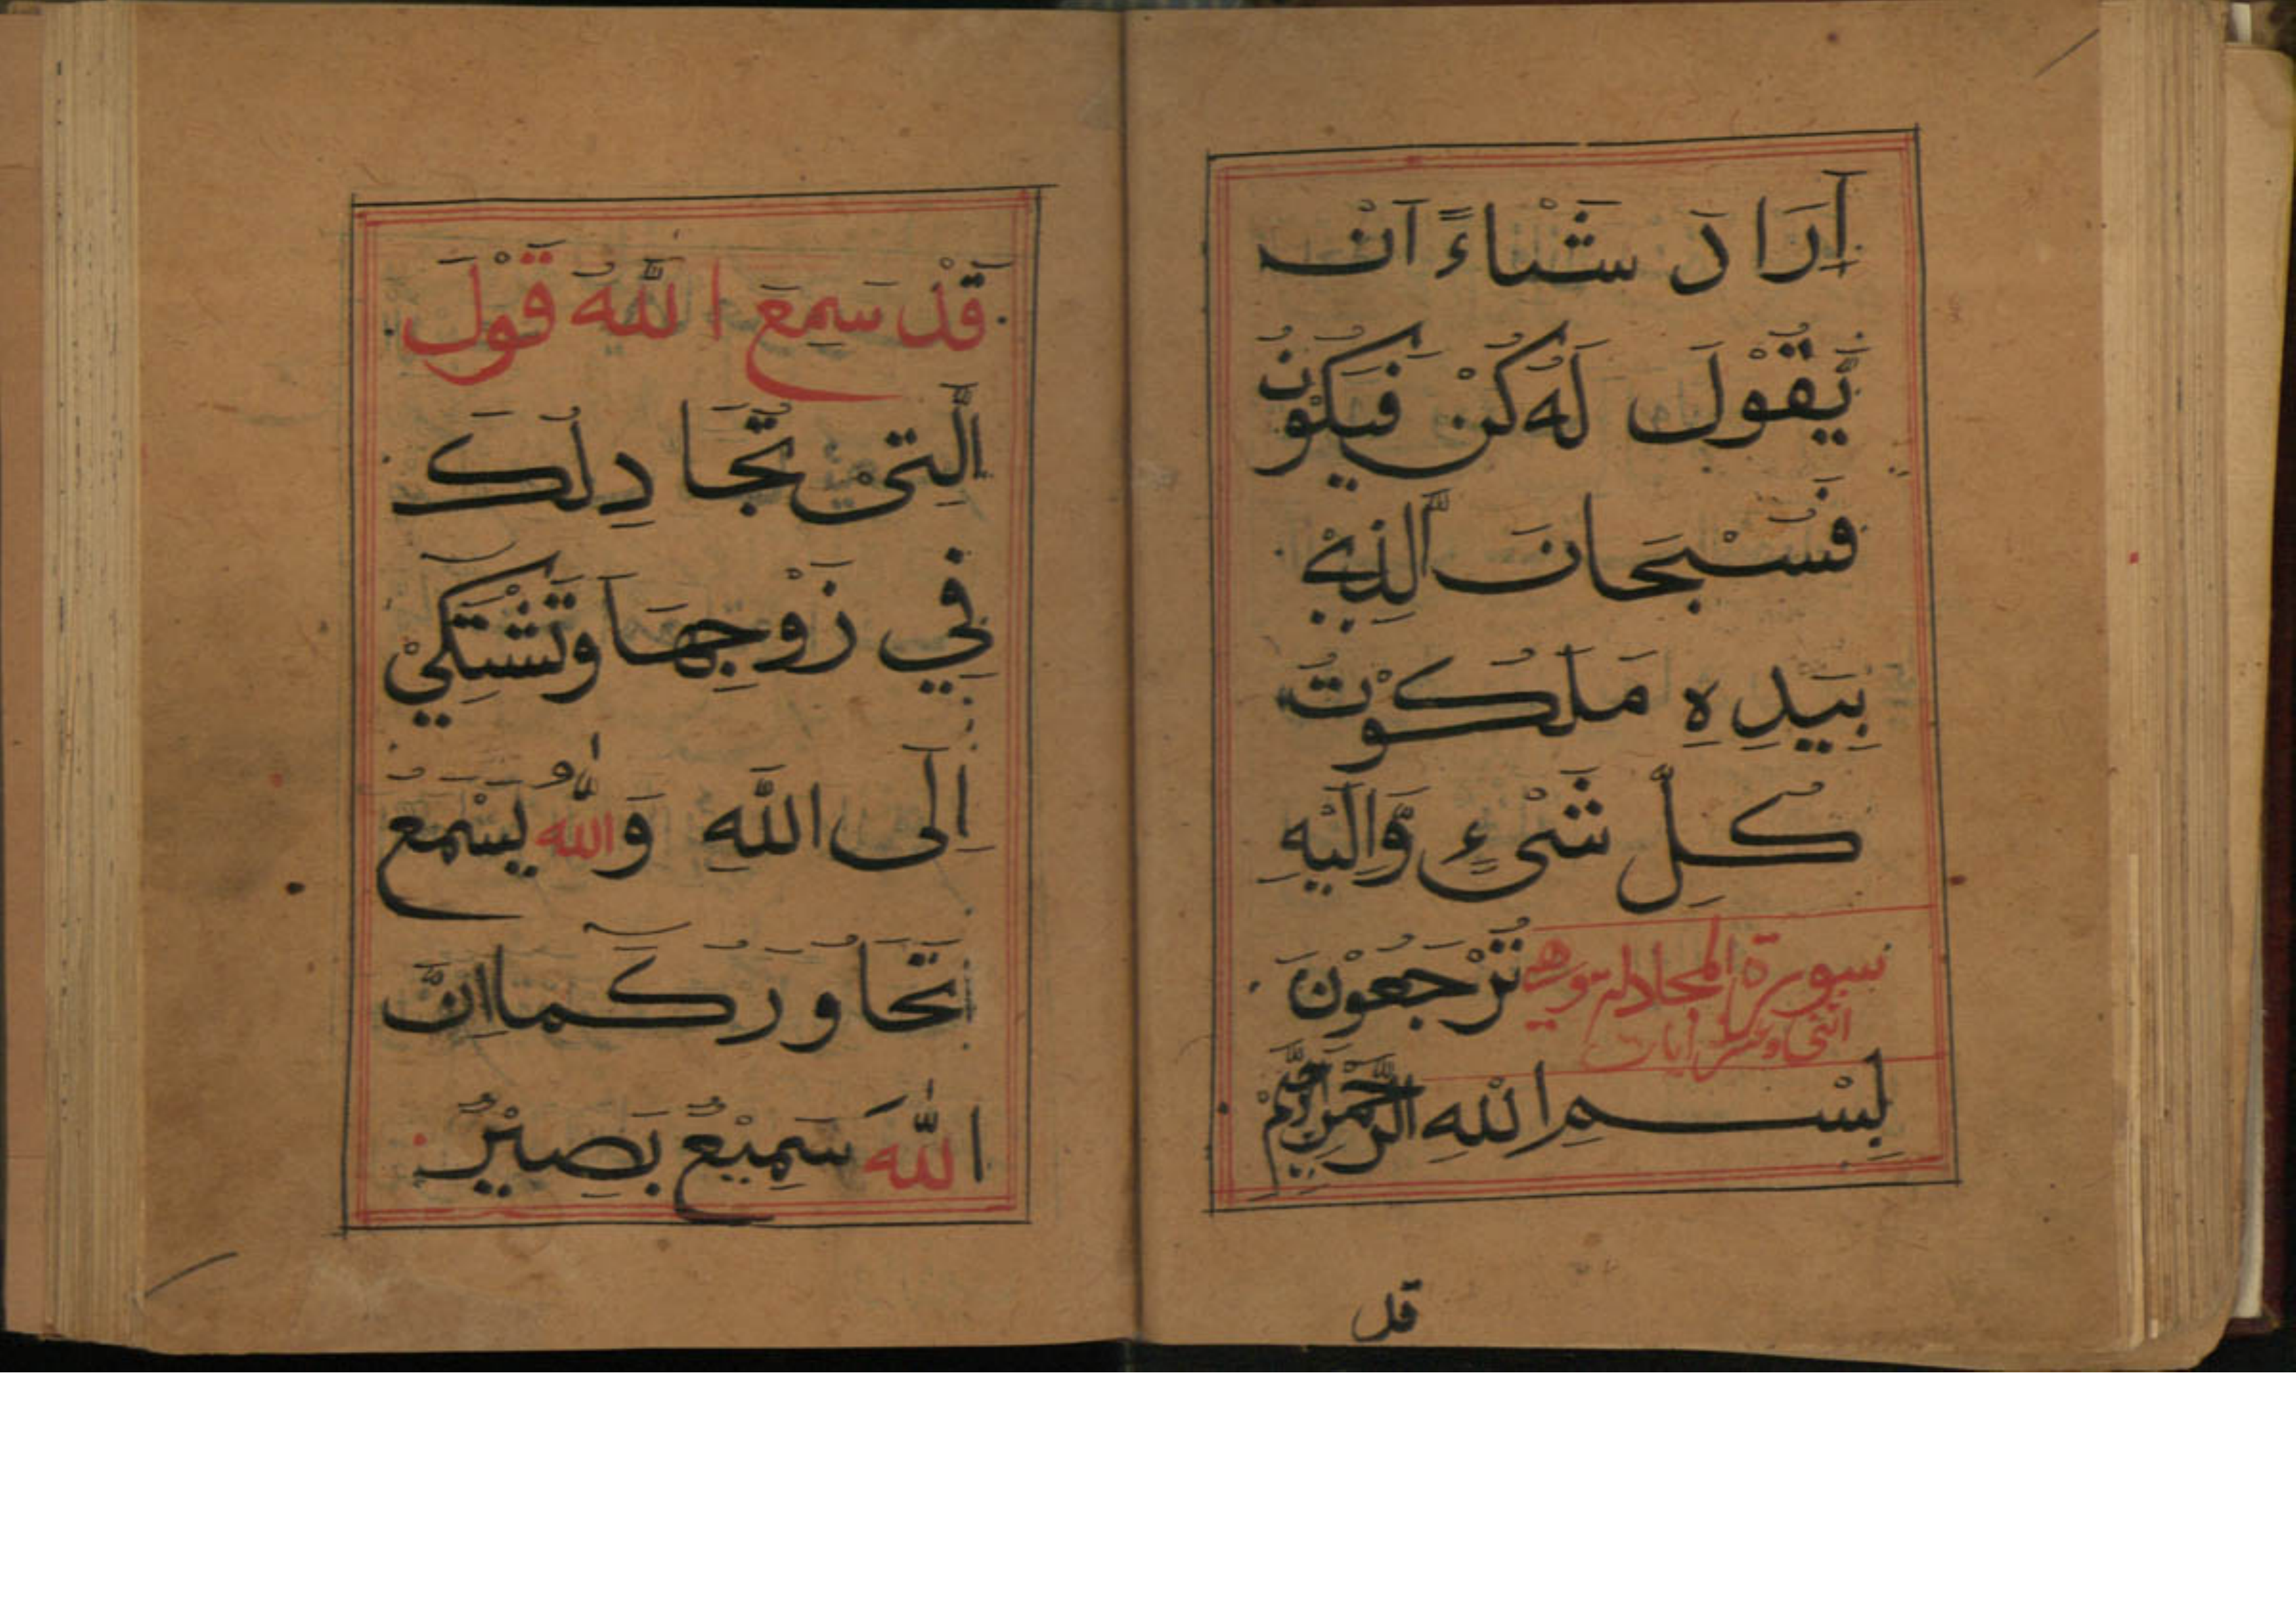 اَرَا دَ شَْثاءً اَنْ
يَّقُوْلَ لَهُ كُنْ فَيَكُوْنُ
فَسُبْحَانَ الَّذِيْ
بِيَدِهِ مَلَكُوْتُ
كُلِّ شَيْءٍ وَّاِلَيْهِ
تُرْجَعُوْنَ
سورة المجادلة وهي
اثنى وعشر ايات
بِسْمِ اللهِ الرَّحْمٰنِ الرَّحِيْمْ
قد
قَدْ سَمِعَ اللّٰهُ قَوْلَ
الَّتِيْ تُجَادِلُكَ
فِي زَوْجِهَا وَتَشْتَكِيْ
اِلَى اللّٰهِ وَاللّٰهُ يَسْمَعُ
تَحَاوُرَكُمَا اِنَّ
اللّٰهَ سَمِيْعٌ بَصِيْرٌ